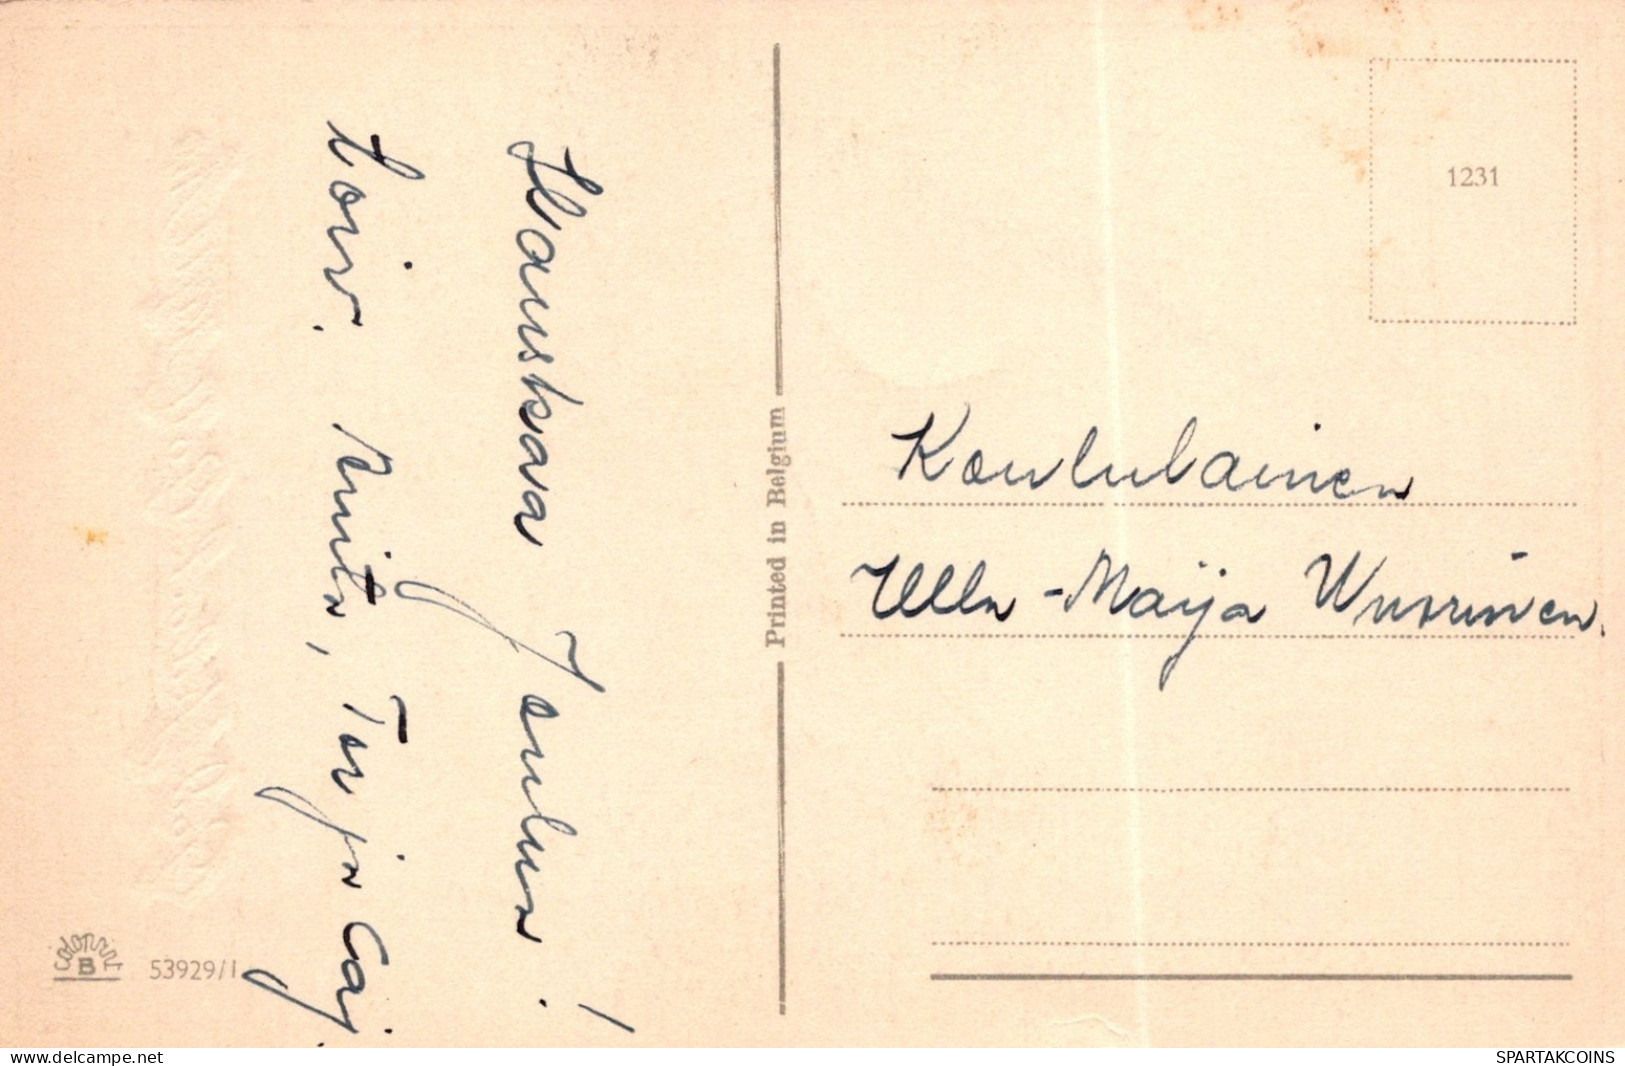 Hauskaa Joulua!
toiv. Raita, Tarja Caj.
Printed in Belgium
1231
Koululainen
Ulla-Maija Wuorinen.
colorprint
B
53929/1
www.delcampe.net
SPARTAKCOINS